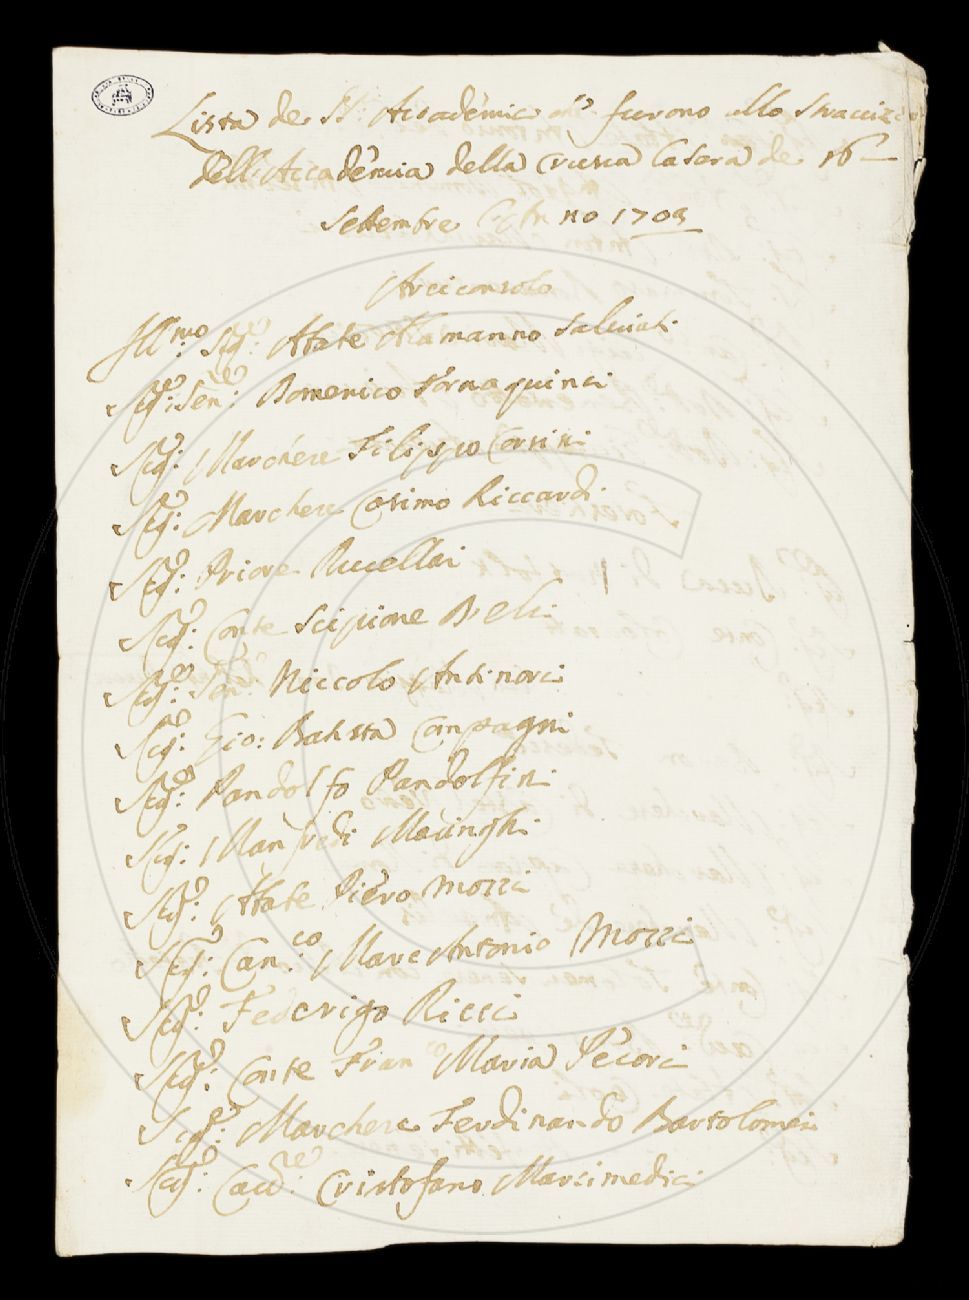 Lista de SS.ri Accademici che furono allo Stravizzo
dell'Accademia della Crusca la sera de 16
Settembre no 1703
Arciconsolo
Ill.mo Sig.re Abate Alamanno Salviati
Sig.re Sen.re Domenico Tornaquinci
Sig.re Marchese Filippo Corsini
Sig.re Marchese Cosimo Riccardi
Sig.re Priore Rucellai
Sig.re Conte Scipione
Sig.re Sen.re Niccolo Antinori
Sig.re Gio: Batista Compagni
Sig.re Pandolfo Pandolfini
Sig.re Manfredi Macinghi
Sig.re Abate Piero Mozzi
Sig.re Can.co Marc Antonio Mozzi
Sig.re Federigo Ricci
Sig.re Conte Fran.co Maria Pecori
Sig.re Marchese Ferdinando Bartolomei
Sig.re Cav.re Cristofano Marzimedici